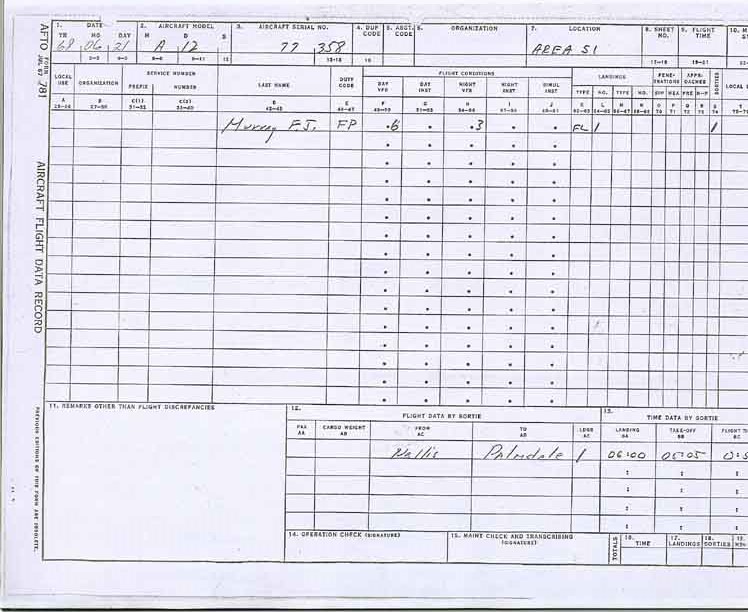 1. DATE 2. AIRCRAFT MODEL 3. AIRCRAFT SERIAL NO. 4. DUP CODE 5. ASGT. CODE 6. ORGANIZATION 7. LOCATION 8. SHEET NO. 9. FLIGHT TIME
YR MO DAY M D S
68 06 21 A 12 77 358 AREA 51
LOCAL USE ORGANIZATION SERVICE NUMBER LAST NAME DUTY CODE FLIGHT CONDITIONS LANDINGS PENE-TRATIONS APPR-OACHES SORTIES
PREFIX NUMBER DAY VFR DAY INST NIGHT VFR NIGHT INST SIMUL INST TYPE NO. TYPE NO.
Murray F.J. FP .6 . .3 . . FL 1 1
AFTO FORM JUL 67 781
AIRCRAFT FLIGHT DATA RECORD
PREVIOUS EDITIONS OF THIS FORM ARE OBSOLETE.
11. REMARKS OTHER THAN FLIGHT DISCREPANCIES
12. FLIGHT DATA BY SORTIE
13. TIME DATA BY SORTIE
PAX AA CARGO WEIGHT AB FROM AC TO AD LDGS LANDING TAKE-OFF
Nallis Palmdale 1 06:00 05:05
14. OPERATION CHECK (SIGNATURE) 15. MAINT CHECK AND TRANSCRIBING (SIGNATURE) TOTALS 16. TIME 17. LANDINGS 18. SORTIES